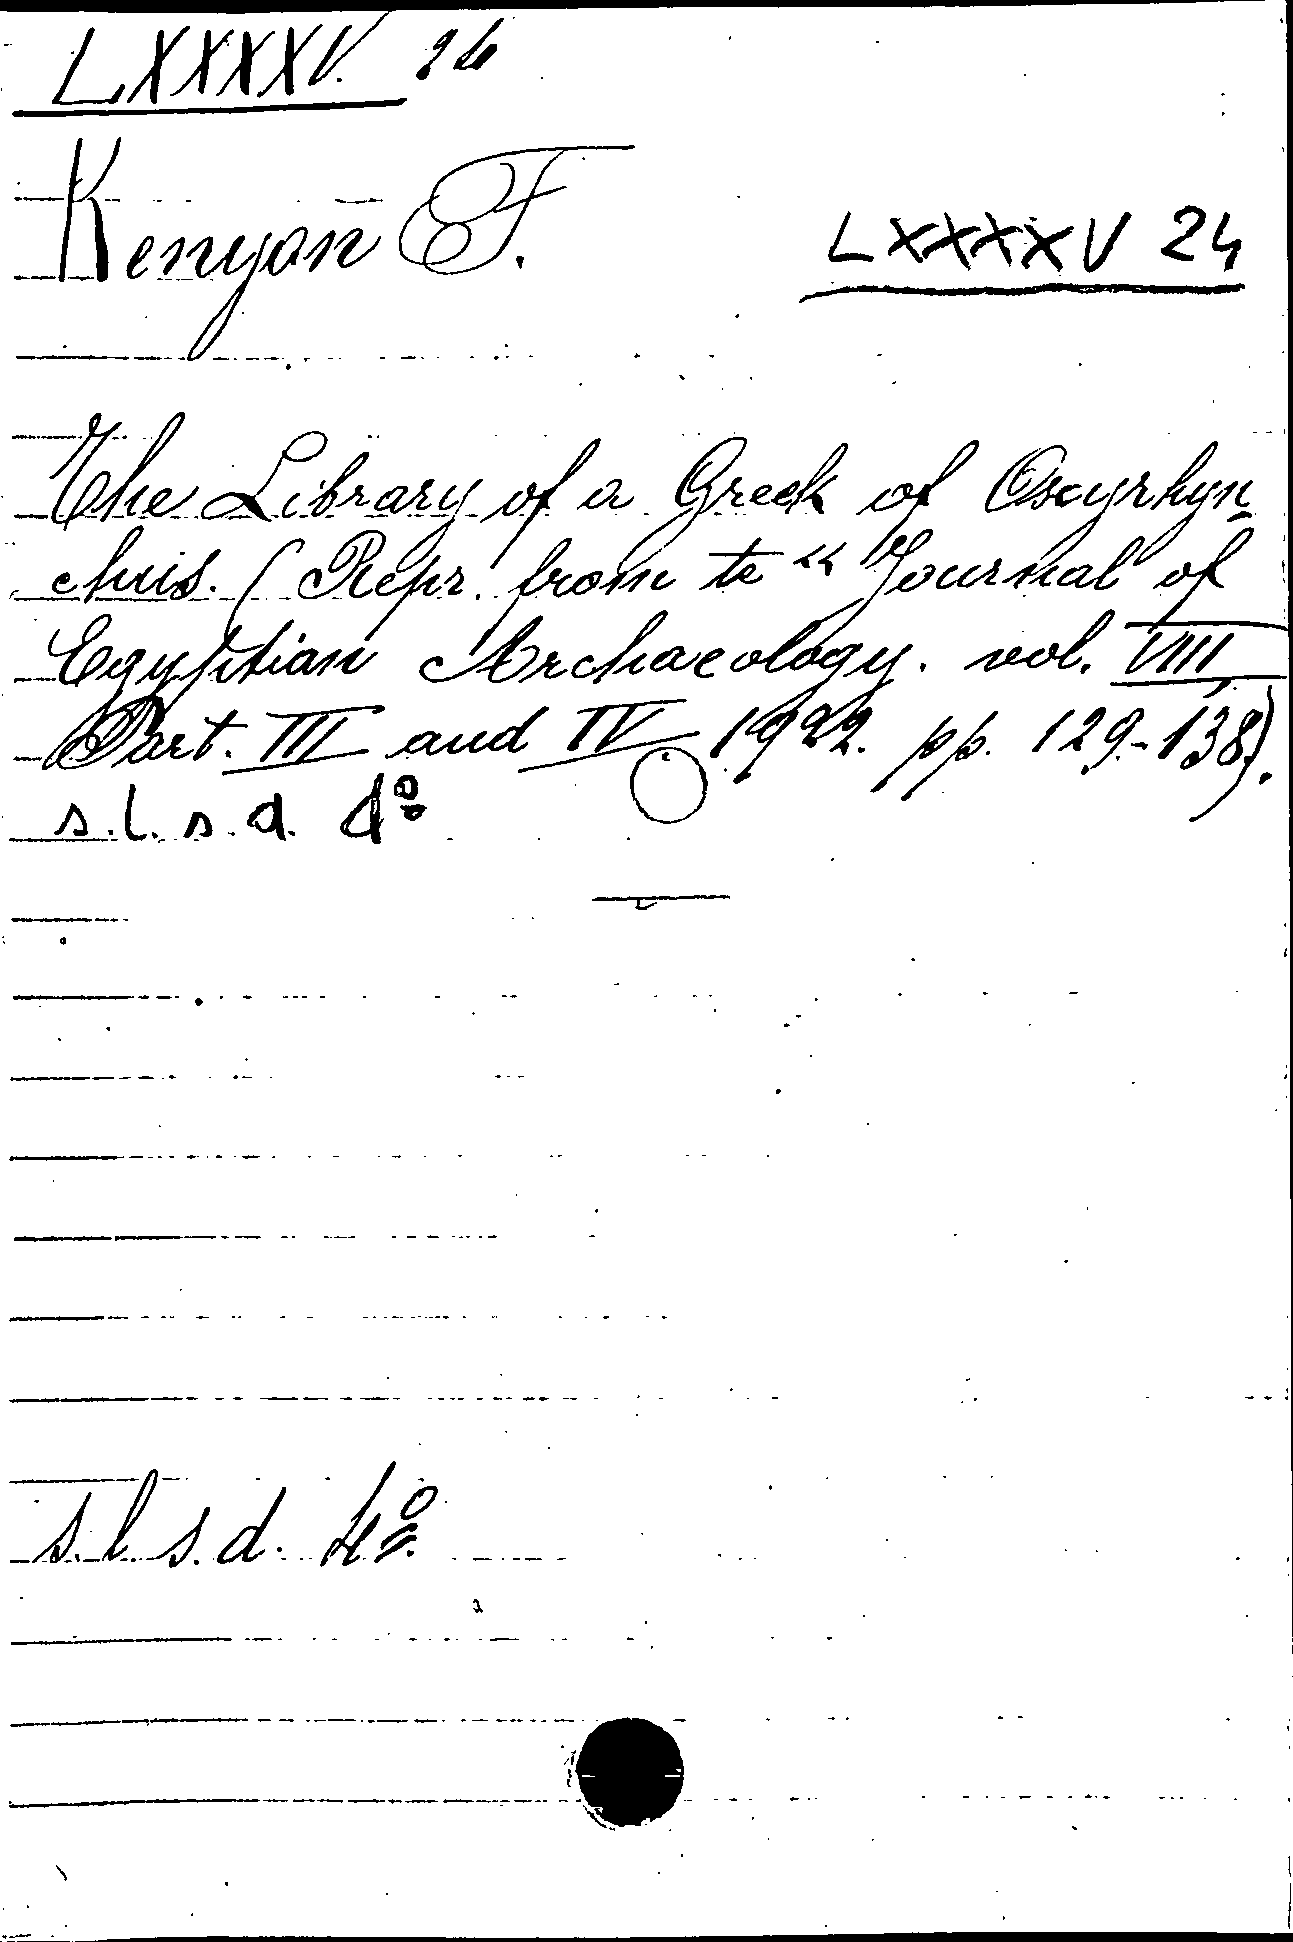 LXXXXV. 24
Kenyon F.
LXXXXV 24
The Library of a Greek of Oxyrhyn
chuis. (Repr. from te “ Journal of
Egyptian Archaeology. vol. VIII,
Part. III and IV 1922. pp. 129-138).
s.l. s.d. 4º
s.l. s.d. 4º